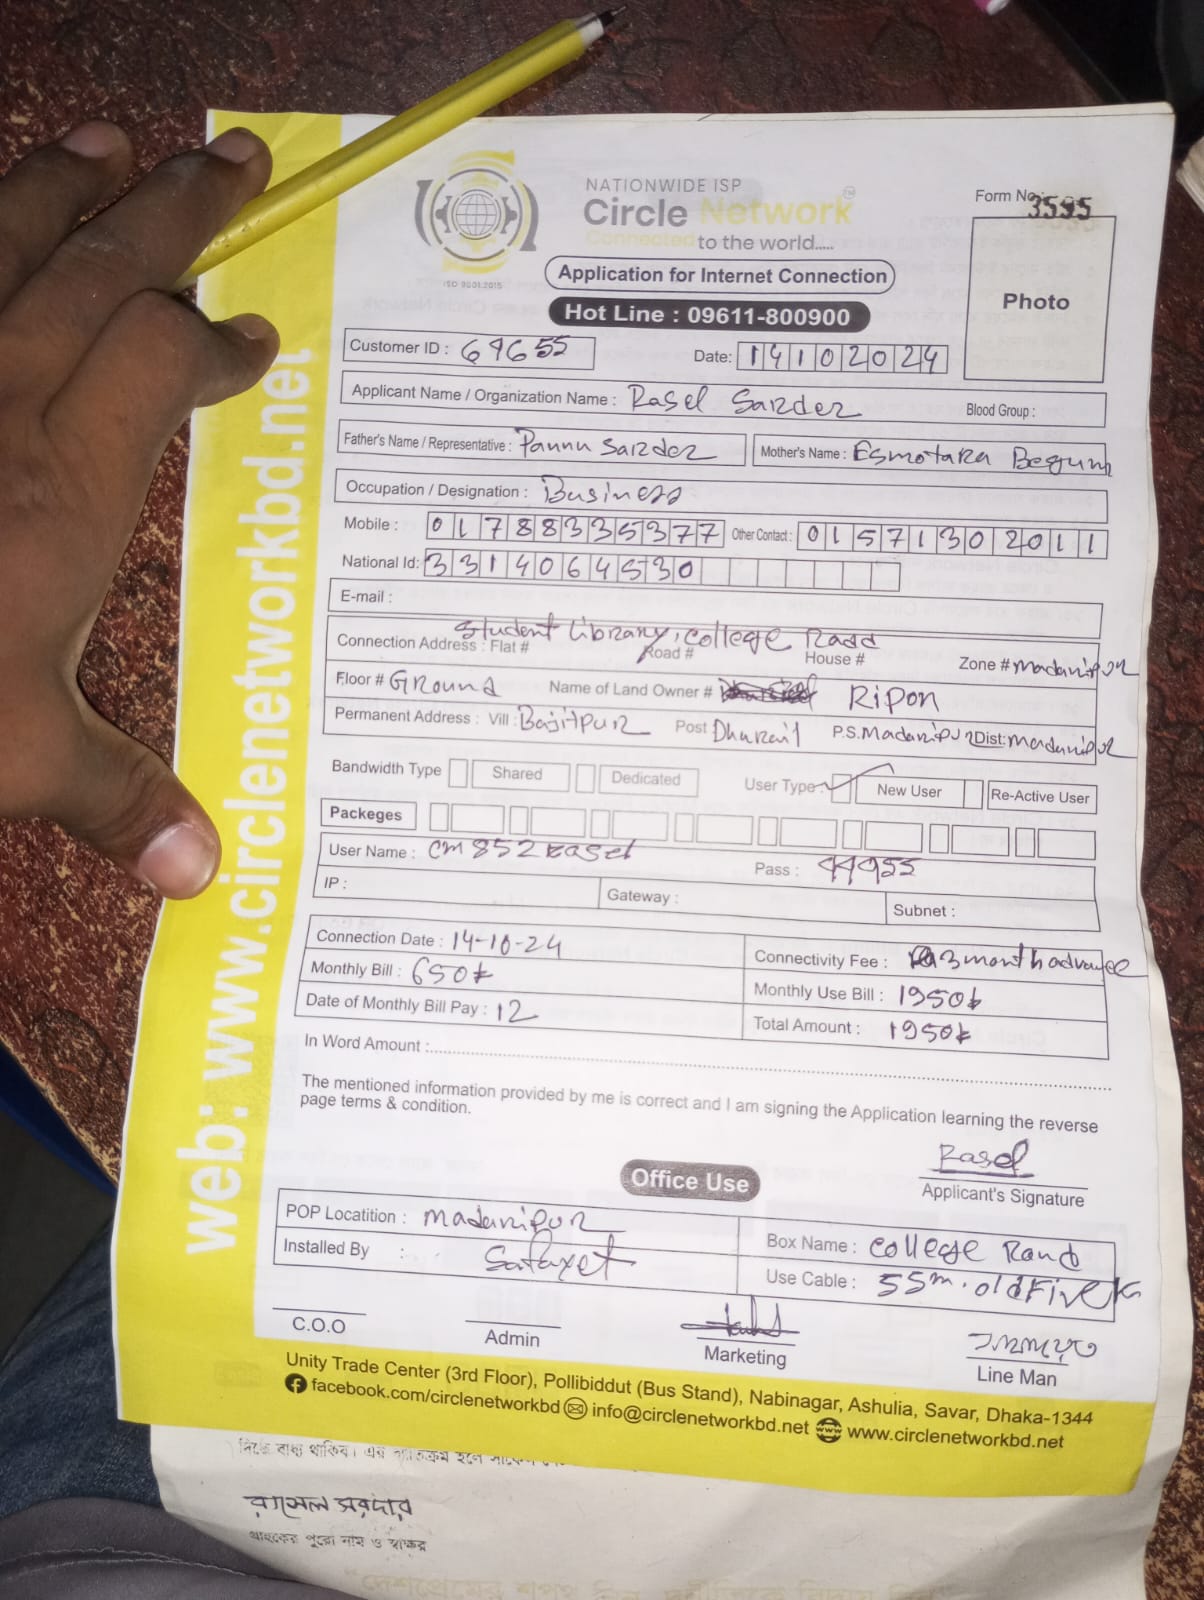 NATIONWIDE ISP
Circle Network
Connected to the world.....
ISO 9001:2015
Form No: 3595
Photo
Application for Internet Connection
Hot Line : 09611-800900
Customer ID : 69655
Date: 14102024
Applicant Name / Organization Name : Rasel Sarder
Blood Group :
Father's Name / Representative : Pannu Sarder
Mother's Name : Esmotara Begum
Occupation / Designation : Business
Mobile : 01788335377
Other Contact : 01571302011
National Id: 3314064530
E-mail :
Student Library, College Road
Connection Address : Flat # Road # House # Zone # Madaripur
Floor # Ground Name of Land Owner # Ripon
Permanent Address : Vill : Bajitpur Post Dhurail P.S. Madaripur Dist: Madaripur
Bandwidth Type Shared Dedicated User Type New User Re-Active User
Packeges
User Name : cm852rasel Pass : 44955
IP : Gateway : Subnet :
Connection Date : 14-10-24
Connectivity Fee : 3 month advance
Monthly Bill : 650
Monthly Use Bill : 1950
Date of Monthly Bill Pay : 12
Total Amount : 1950
In Word Amount :
The mentioned information provided by me is correct and I am signing the Application learning the reverse
page terms & condition.
Rasel
Applicant's Signature
Office Use
POP Locatition : Madaripur
Box Name : College Road
Installed By :
Use Cable : 55m. old
C.O.O
Admin
Marketing
Line Man
Unity Trade Center (3rd Floor), Pollibiddut (Bus Stand), Nabinagar, Ashulia, Savar, Dhaka-1344
facebook.com/circlenetworkbd info@circlenetworkbd.net www.circlenetworkbd.net
web: www.circlenetworkbd.net
দিতে বাধ্য থাকিব। এর ব্যতিক্রম হলে
রাসেল সরদার
গ্রাহকের পুরো নাম ও স্বাক্ষর